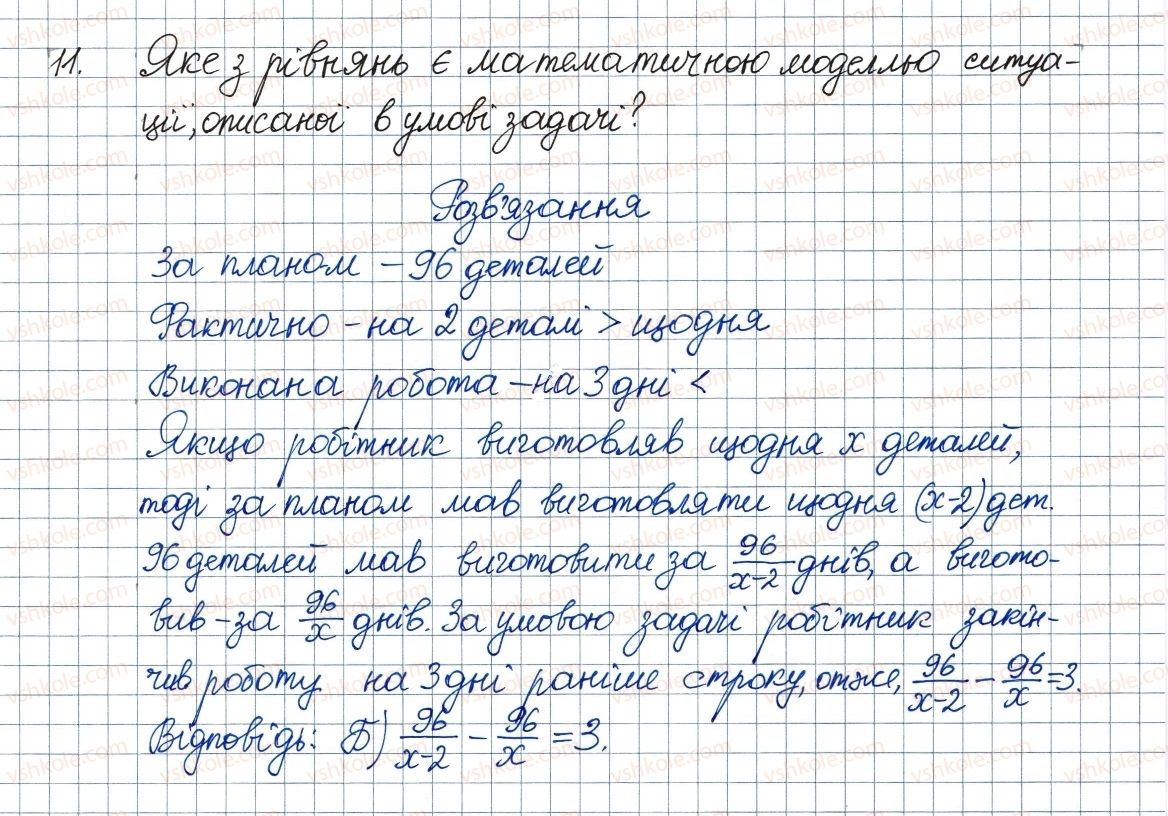 11. Яке з рівнянь є математичною моделлю ситуа-
ції, описаної в умові задачі?
Розв'язання
За планом – 96 деталей
Фактично – на 2 деталі > щодня
Виконана робота – на 3 дні <
Якщо робітник виготовляв щодня x деталей,
тоді за планом мав виготовляти щодня (x-2) дет.
96 деталей мав виготовити за 96/(x-2) днів, а вигото-
вив – за 96/x днів. За умовою задачі робітник закін-
чив роботу на 3 дні раніше строку, отже, 96/(x-2) - 96/x = 3.
Відповідь: Б) 96/(x-2) - 96/x = 3.